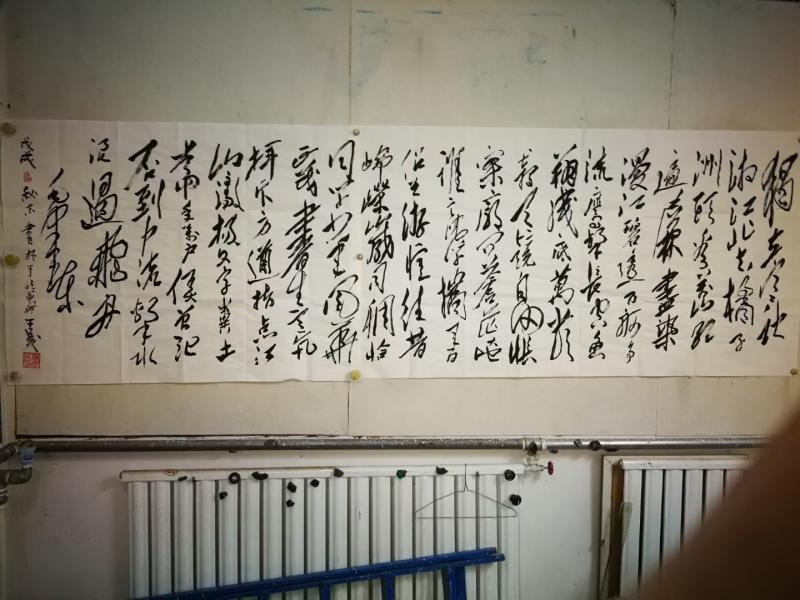 獨立寒秋
湘江北去橘子
洲頭看萬山紅
遍層林盡染
漫江碧透百舸爭
流鷹擊長空魚
翔淺底萬類
霜天競自由悵
寥廓問蒼茫大地
誰主沉浮攜來百
侶曾游憶往昔
崢嶸歲月稠恰
同學少年風華
正茂書生意氣
揮斥方遒指點江
山激揚文字糞土
當年萬戶侯曾記
否到中流擊水
浪遏飛舟
毛澤東
戊戌秋末書於